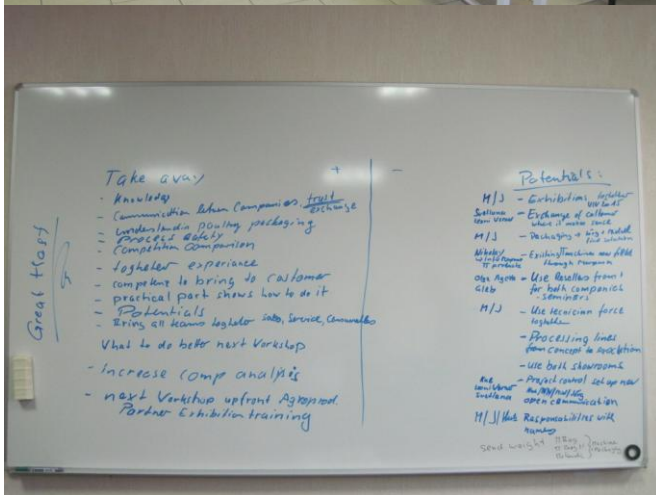 Great Host
Take away + -
- Knowledge
- Communication between Companies, trust
exchange
- Understandin poultry packaging
- Process safety
- Competition comparison
- togheter experiance
- competent to bring to customer
- practical part shows how to do it
- Potentials
- Bring all teams togheter Sales, Service,
What to do better next Workshop
- Increase comp analysis
- next Workshop upfront Agroprod.
Partner Exhibition training
Potentials:
M/J - Exhibitions togheter
Svetlana - Exchange of customer
where it makes sence
M/J - Packaging +
- Existing machines new field
through
Olga - Use Resellers from
Gleb for both companies
- seminers
M/J - Use tecnician force
togheter
- Processing lines
from concept to
- use both showrooms
- Project control set up new
Svetlana open communication
M/J/ Responsabilities with
send weight